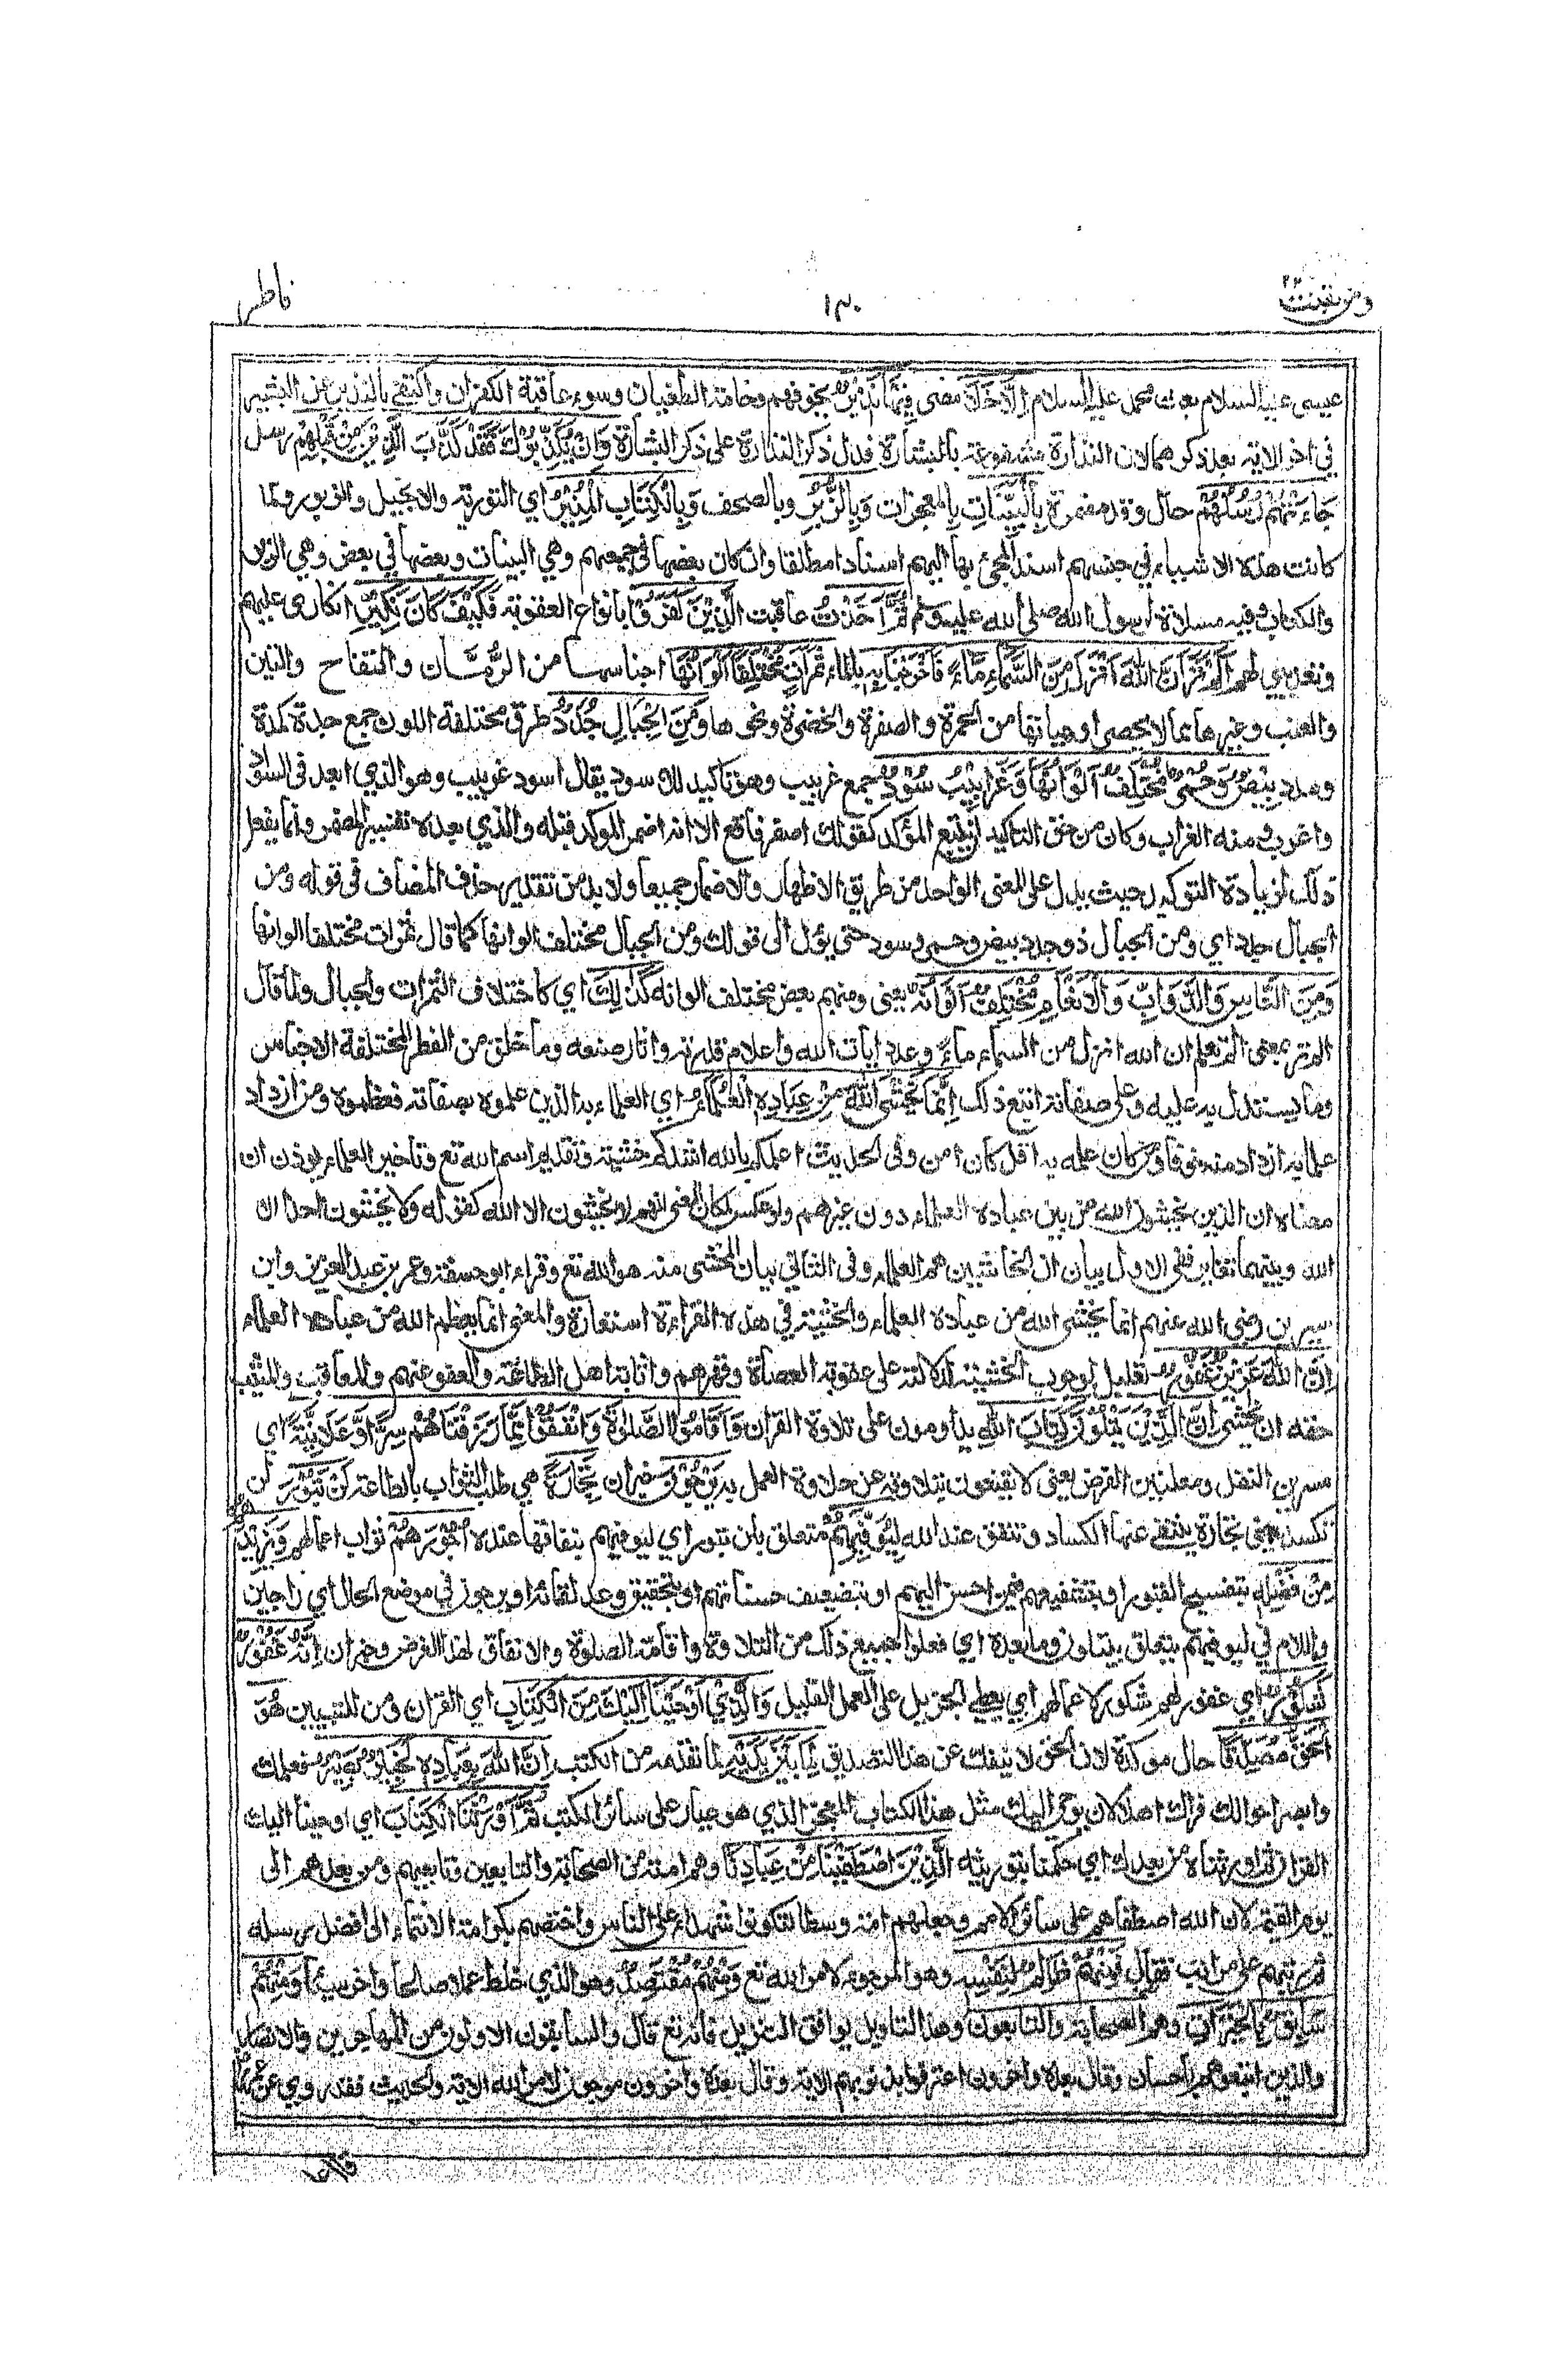 ومن يقنت ٢٢
١٣٠
فاطر
عيسى عليه السلام بعث محمد عليه السلام اِلَّا خَلَا مضى فِيْهَا نَذِيْرٌ يخوفهم وخامة الطغيان وسوء عاقبة الكفران واكتفى بالنذير عن البشير
في اخر الاية بعد ذكرهما لان النذارة مشفوعة بالبشارة فدل ذكر النذارة على ذكر البشارة وَاِنْ يُّكَذِّبُوْكَ فَقَدْ كَذَّبَ الَّذِيْنَ مِنْ قَبْلِهِمْ رسل
جَاءَتْهُمْ رُسُلُهُمْ حال وقد مضمرة بِالْبَيِّنٰتِ بالمعجزات وَبِالزُّبُرِ وبالصحف وَبِالْكِتَابِ الْمُنِيْرِ اي التورية والانجيل والزبور ولما
كانت هذه الاشياء في جنسهم اسند المجئ بها اليهم اسنادا مطلقا وان كان بعضها في جميعهم وهي البينات وبعضها في بعض وهي الزبر
والكتاب وفيه مسلاة لرسول الله صلى الله عليه وسلم ثُمَّ اَخَذْتُ عاقبت الَّذِيْنَ كَفَرُوْا بانواع العقوبة فَكَيْفَ كَانَ نَكِيْرِ انكاري عليهم
وتعذيبي لهم اَلَمْ تَرَ اَنَّ اللهَ اَنْزَلَ مِنَ السَّمَاءِ مَاءً فَاَخْرَجْنَا بِهٖ بالماء ثَمَرٰتٍ مُّخْتَلِفًا اَلْوَانُهَا اجناسها من الرُّمَّان والتفاح والتين
والعنب وغيرها مما لا يحصى او هيأتها من الحمرة والصفرة والخضرة ونحوها وَمِنَ الْجِبَالِ جُدَدٌ طرق مختلفة اللون جمع جدة كمدة
ومدد بِيْضٌ وَّحُمْرٌ مُّخْتَلِفٌ اَلْوَانُهَا وَغَرَابِيْبُ سُوْدٌ جمع غربيب وهو تاكيد للاسود يقال اسود غربيب وهو الذي ابعد في السواد
واغرب فيه ومنه الغراب وكان من حق التاكيد ان يتبع المؤكد كقولك اصفر فاقع الا انه اضمر المؤكد قبله والذي بعده تفسير للمضمر وانما يفعل
ذلك لزيادة التوكيد حيث يدل على المعنى الواحد من طريق الاظهار والاضمار جميعا ولا بد من تقدير حذف المضاف في قوله ومن
الجبال جدد اي ومن الجبال ذو جدد بيض وحمر وسود حتى يؤل الى قولك ومن الجبال مختلف الوانها كما قال ثمرات مختلفا الوانها
وَمِنَ النَّاسِ وَالدَّوَابِّ وَالْاَنْعَامِ مُخْتَلِفٌ اَلْوَانُهٗ يعني ومنهم بعض مختلف الوانه كَذٰلِكَ اي كاختلاف الثمرات والجبال ولما قال
الم تر بمعنى الم تعلم ان الله انزل من السماء ماء وعدد ايات الله واعلام قدرته واثار صنعه وما خلق من الفطر المختلفة الاجناس
وما يستدل به عليه وعلى صفاته اتبع ذلك اِنَّمَا يَخْشَى اللهَ مِنْ عِبَادِهِ الْعُلَمَاءُ اي العلماء به الذين علموه بصفاته فعظموه ومن ازداد
علما به ازداد منه خوفا ومن كان علمه به اقل كان امن وفي الحديث اعلمكم بالله اشدكم خشية وتقديم اسم الله تع وتاخير العلماء يوذن ان
معناه ان الذين يخشون الله من بين عباده العلماء دون غيرهم ولو عكس لكان المعنى انهم لا يخشون الا الله كقوله ولا يخشون احدا الا
الله وبينهما تغاير ففي الاول بيان ان الخاشيين هم العلماء وفي الثاني بيان المخشي منه هو الله تع وقراء ابو حنيفة وعمر بن عبد العزيز وابن
سيرين رضي الله عنهم انما يخشى الله من عباده العلماء والخشية في هذه القراءة استعارة والمعنى انما يعظم الله من عباده العلماء
اِنَّ اللهَ عَزِيْزٌ غَفُوْرٌ تعليل لوجوب الخشية لدلالته على عقوبة العصاة وقهرهم واثابة اهل الطاعة والعفو عنهم والمعاقب والمثيب
حقه ان يخشى اِنَّ الَّذِيْنَ يَتْلُوْنَ كِتَابَ اللهِ يداومون على تلاوة القران وَاَقَامُوا الصَّلٰوةَ وَاَنْفَقُوْا مِمَّا رَزَقْنَاهُمْ سِرًّا وَّعَلَانِيَةً اي
مسرين النفل ومعلنين الفرض يعني لا يقنعون بتلاوته عن حلاوة العمل به يَرْجُوْنَ خبر ان تِجَارَةً هي طلب الثواب بالطاعة لَنْ تَبُوْرَ لن
تكسد يعني تجارة ينتفي عنها الكساد وتنفق عند الله لِيُوَفِّيَهُمْ متعلق بلن تبور اي ليوفيهم بنفاقها عنده اُجُوْرَهُمْ ثواب اعمالهم وَيَزِيْدَهُمْ
مِنْ فَضْلِهٖ بتفسيح القبور او بتشفيعهم فيمن احسن اليهم او بتضعيف حسناتهم او بتحقيق وعد لقائه او يرجون في موضع الحال اي راجين
واللام في ليوفيهم يتعلق بيتلون وما بعده اي فعلوا جميع ذلك من التلاوة واقامة الصلوة والانفاق لهذا الغرض وخبر ان اِنَّهٗ غَفُوْرٌ
شَكُوْرٌ اي غفور لهم شكور لاعمالهم اي يعطي الجزيل على العمل القليل وَالَّذِيْ اَوْحَيْنَا اِلَيْكَ مِنَ الْكِتَابِ اي القران ومن للتبيين هُوَ
الْحَقُّ مُصَدِّقًا حال موكدة لان الحق لا ينفك عن هذا التصديق لِمَا بَيْنَ يَدَيْهِ لما تقدمه من الكتب اِنَّ اللهَ بِعِبَادِهٖ لَخَبِيْرٌ بَصِيْرٌ فعلمك
وابصر احوالك فراك اهلا لان يوحي اليك مثل هذا الكتاب المعجز الذي هو عيار على سائر الكتب ثُمَّ اَوْرَثْنَا الْكِتَابَ اي اوحينا اليك
القران ثم اورثناه من بعدك اي حكمنا بتوريثه الَّذِيْنَ اصْطَفَيْنَا مِنْ عِبَادِنَا وهم امته من الصحابة والتابعين وتابعيهم ومن بعدهم الى
يوم القيمة لان الله اصطفاهم على سائر الامم وجعلهم امة وسطا لتكونوا شهداء على الناس واختصهم بكرامة الانتماء الى افضل رسله
ثم رتبهم على مراتب فقال فَمِنْهُمْ ظَالِمٌ لِّنَفْسِهٖ وهو المرجوء لامر الله تع وَمِنْهُمْ مُّقْتَصِدٌ وهو الذي خلط عملا صالحا واخر سيئا وَمِنْهُمْ
سَابِقٌ بِالْخَيْرَاتِ وهم الصحابة والتابعون وهذا التاويل يوافق التنزيل فانه تع قال والسابقون الاولون من المهاجرين والانصار
والذين اتبعوهم باحسان وقال بعده واخرون اعترفوا بذنوبهم الاية وقال بعده واخرون مرجون لامر الله الاية والحديث فقد روي عن عمر